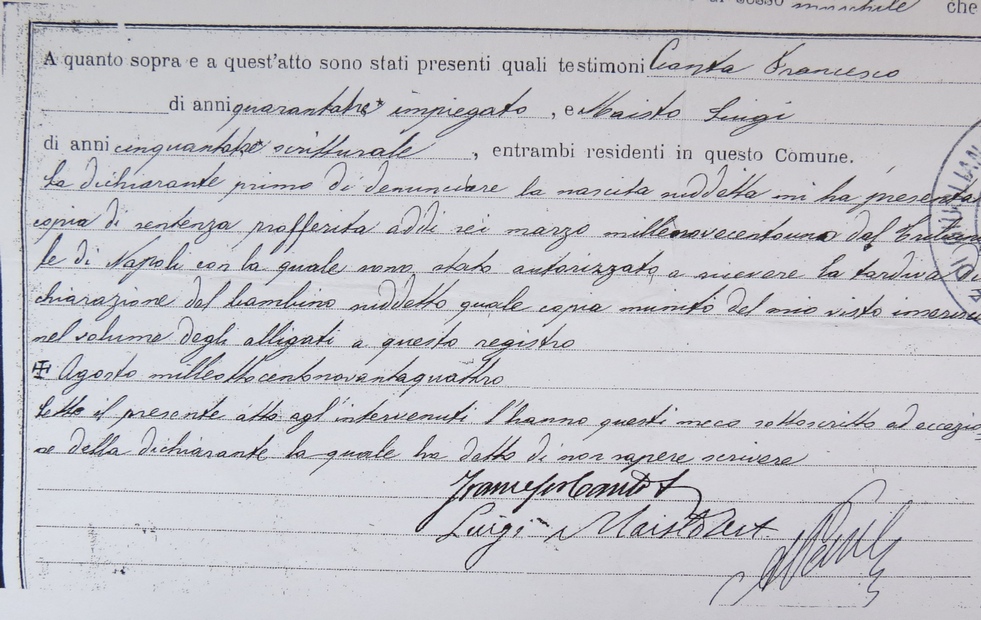 di sesso maschile che
A quanto sopra e a quest'atto sono stati presenti quali testimoni Canta Francesco
di anni quarantatre impiegato, e Maisto Luigi
di anni cinquantatre scritturale, entrambi residenti in questo Comune.
La dichiarante primo di denunciare la nascita suddetta mi ha presenta
copia di sentenza profferita addì sei marzo millenovecentouno dal Tribuna
le di Napoli con la quale sono stato autorizzato a ricevere la tardiva di
chiarazione del bambino suddetto quale copia munita del mio visto inserisco
nel volume degli alligati a questo registro
Agosto milleottocentonovantaquattro
Letto il presente atto agl'intervenuti l'hanno questi meco sottoscritto ad eccezio
ne della dichiarante la quale ha detto di non sapere scrivere
Luigi Maisto